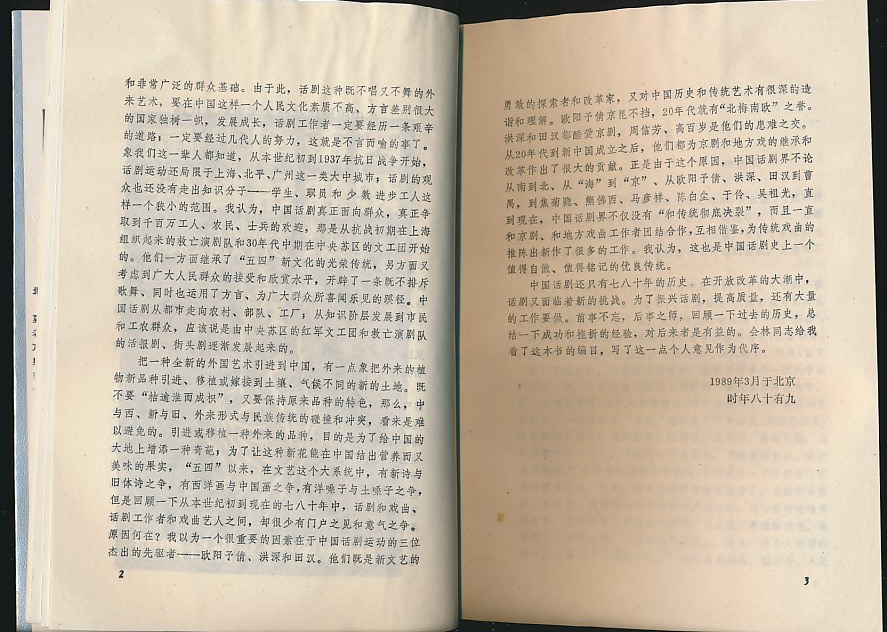 和非常广泛的群众基础。由于此，话剧这种既不唱又不舞的外
来艺术，要在中国这样一个人民文化素质不高、方言差别很大
的国家独树一帜，发展成长，话剧工作者一定要经历一条艰辛
的道路；一定要经过几代人的努力，这就是不言而喻的事了。
象我们这一辈人都知道，从本世纪初到1937年抗日战争开始，
话剧运动还局限于上海、北平、广州这一类大中城市；话剧的观
众也还没有走出知识分子——学生、职员和少数进步工人这
样一个狭小的范围。我认为，中国话剧真正面向群众，真正争
取到千百万工人、农民、士兵的欢迎，那是从抗战初期在上海
组织起来的救亡演剧队和30年代中期在中央苏区的文工团开始
的。他们一方面继承了“五四”新文化的光荣传统，另方面又
考虑到广大人民群众的接受和欣赏水平，开辟了一条既不排斥
歌舞、同时也运用了方言、为广大群众所喜闻乐见的蹊径。中
国话剧从都市走向农村、部队、工厂；从知识阶层发展到市民
和工农群众，应该说是由中央苏区的红军文工团和救亡演剧队
的活报剧、街头剧逐渐发展起来的。
把一种全新的外国艺术引进到中国，有一点象把外来的植
物新品种引进、移植或嫁接到土壤、气候不同的新的土地。既
不要“桔逾淮而成枳”，又要保持原来品种的特色，那么，中
与西、新与旧、外来形式与民族传统的碰撞和冲突，看来是难
以避免的。引进或移植一种外来的品种，目的是为了给中国的
大地上增添一种奇葩；为了让这种新花能在中国结出营养而又
美味的果实，“五四”以来，在文艺这个大系统中，有新诗与
旧体诗之争，有西洋画与中国画之争，有洋嗓子与土嗓子之争，
但是回顾一下从本世纪初到现在的七八十年中，话剧和戏曲、
话剧工作者和戏曲艺人之间，却很少有门户之见和意气之争。
原因何在？我以为一个很重要的因素在于中国话剧运动的三位
杰出的先驱者——欧阳予倩、洪深和田汉。他们既是新文艺的
2
勇敢的探索者和改革家，又对中国历史和传统艺术有很深的造
诣和理解。欧阳予倩京昆不挡，20年代就有“北梅南欧”之誉。
洪深和田汉都酷爱京剧，周信芳、高百岁是他们的患难之交。
从20年代到新中国成立之后，他们都为京剧和地方戏的继承和
改革作出了很大的贡献。正是由于这个原因，中国话剧界不论
从南到北、从“海”到“京”、从欧阳予倩、洪深、田汉到曹
禺，到焦菊隐、熊佛西、马彦祥、陈白尘、于伶、吴祖光，直
到现在，中国话剧界不仅没有“和传统彻底决裂”，而且一直
和京剧、和地方戏曲工作者团结合作，互相借鉴，为传统戏曲的
推陈出新作了很多的工作。我认为，这也是中国话剧史上一个
值得自傲、值得铭记的优良传统。
中国话剧还只有七八十年的历史。在开放改革的大潮中，
话剧又面临着新的挑战。为了振兴话剧，提高质量，还有大量
的工作要做。前事不忘，后事之师，回顾一下过去的历史，总
结一下成功和挫折的经验，对后来者是有益的。会林同志给我
看了这本书的编目，写了这一点个人意见作为代序。
1989年3月于北京
时年八十有九
3